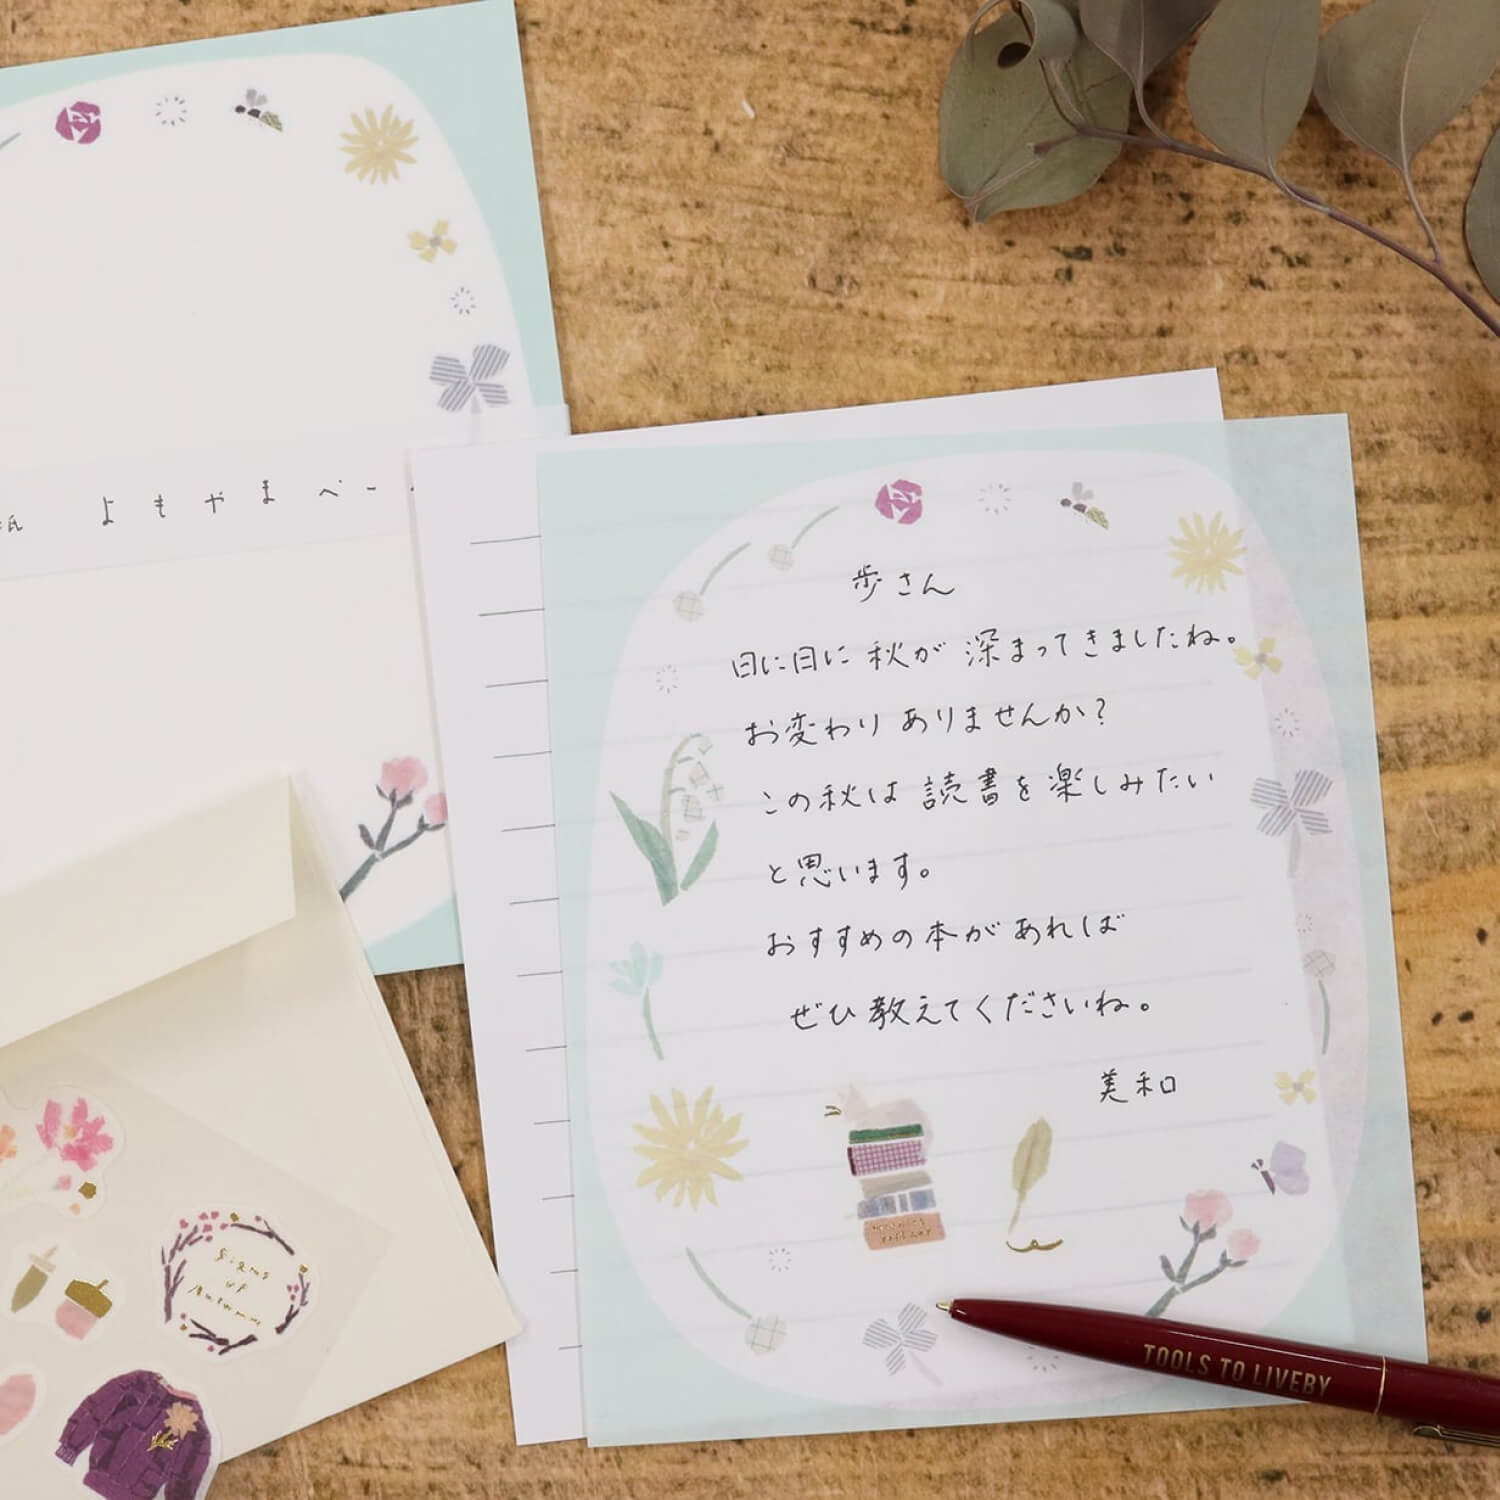 よもやまペー
歩さん
日に日に秋が深まってきましたね。
お変わりありませんか?
この秋は読書を楽しみたい
と思います。
おすすめの本があれば
ぜひ教えてくださいね。
美和
Signs
of
Autumn
TOOLS TO LIVEBY